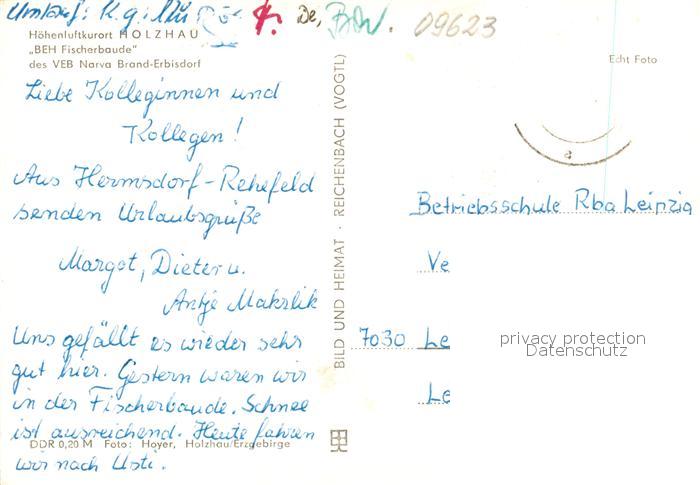 09623
Höhenluftkurort HOLZHAU
„BEH Fischerbaude"
des VEB Narva Brand-Erbisdorf
Echt Foto
Liebe Kolleginnen und
Kollegen!
Aus Hermsdorf-Rehefeld
senden Urlaubsgrüße
Margot, Dieter u.
Antje Makrlik
Uns gefällt es wieder sehr
gut hier. Gestern waren wir
in der Fischerbaude. Schnee
ist ausreichend. Heute fahren
wir nach Usti.
DDR 0,20 M Foto: Hoyer, Holzhau/Erzgebirge
BILD UND HEIMAT · REICHENBACH (VOGTL)
Betriebsschule Rba Leipzig
Ve
7030 Le
Le
privacy protection
Datenschutz